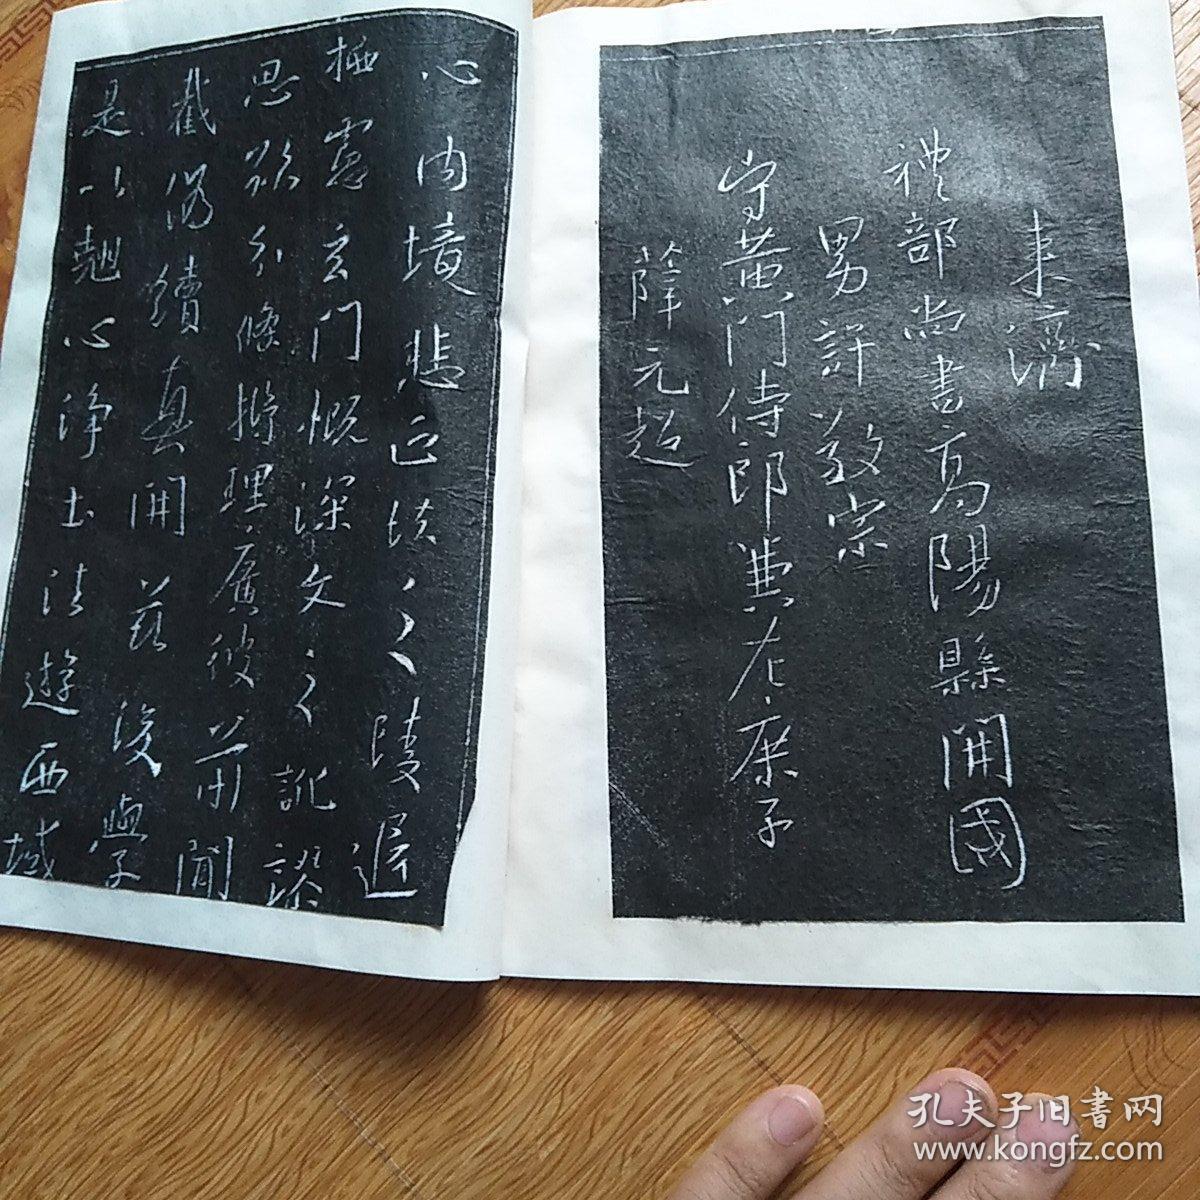 來濟
禮部尚書高陽縣開國
男許敬宗
守黃門侍郎兼左庶子
薛元超
心內境悲正法之陵遲
栖慮玄門慨深文之訛謬
思欲分條析理廣彼前聞
截偽續真開茲後學
是以翹心淨土法遊西域
孔夫子旧書网
www.kongfz.com